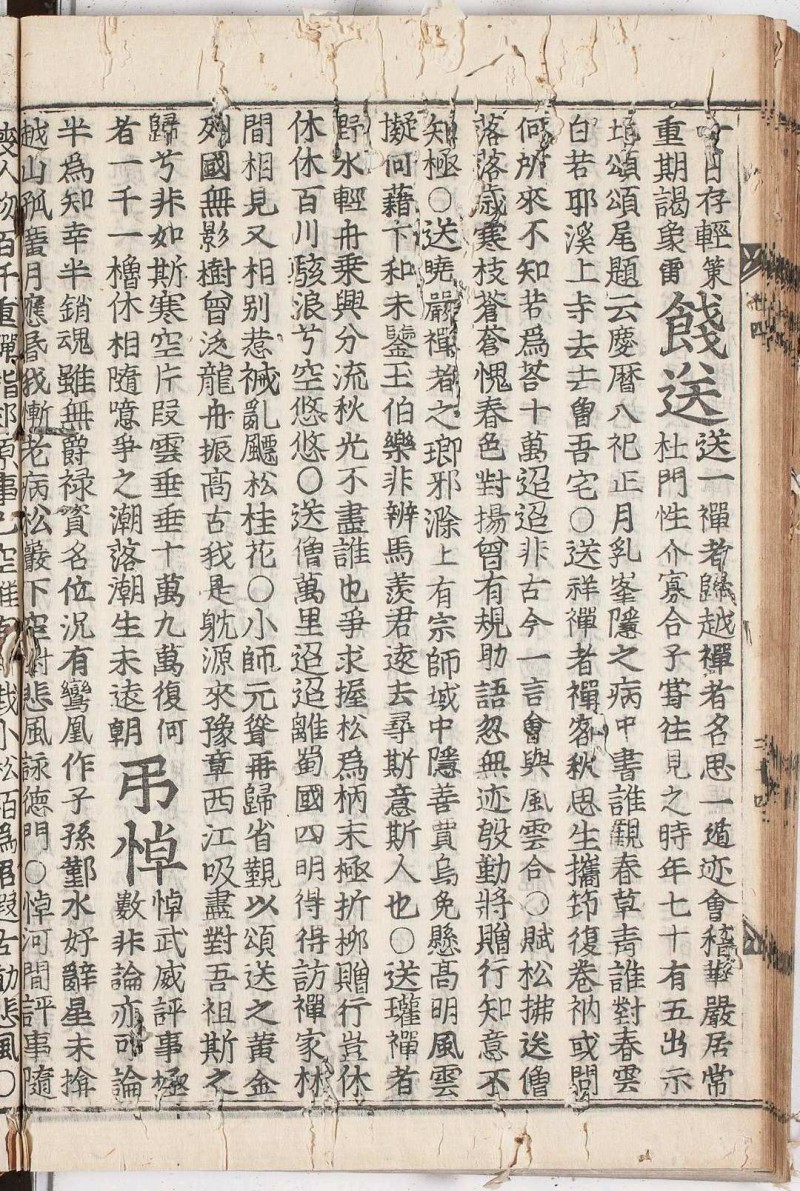 一日存輕策
重期謁象雷
餞送
送一禪者歸越禪者名思一遁迹會稽華嚴居常
杜門性介寡合子甞往見之時年七十有五出示
頌頌尾題云慶曆八祀正月乳峯隱之病中書誰觀春草青誰對春雲
白若耶溪上寺去去會吾宅○送祥禪者禪客秋思生攜笻復卷衲或問
何所來不知若爲荅十萬迢迢非古今一言會與風雲合○賦松拂送僧
落落歲寒枝蒼蒼愧春色對揚曾有規助語忽無迹殷勤將贈行知意不
知極○送曉嚴禪者之瑯邪滁上有宗師域中隱善賈烏兔懸高明風雲
擬何藉卞和未鑒玉伯樂非辨馬羨君遠去尋斯意斯人也○送瓘禪者
野水輕舟乘興分流秋光不盡誰也爭求握松爲柄末極折栁贈行豈休
休休百川駭浪兮空悠悠○送僧萬里迢迢離蜀國四明得得訪禪家林
間相見又相別惹裓亂飄松桂花○小師元聳再歸省覲以頌送之黃金
列國無影樹曾泛龍舟振高古我是躭源來豫章西江吸盡對吾祖斯之
歸兮非如斯寒空片段雲垂垂十萬九萬復何
者一千一櫓休相隨噫爭之潮落潮生未遠朝
弔悼
悼武威評事極
數非論亦可論
半爲知幸半銷魂雖無爵祿資名位況有鸞凰作子孫鄞水好辭星未揜
越山孤蜜月應昏我慚老病松巖下空對悲風詠德門○悼河間評事隨